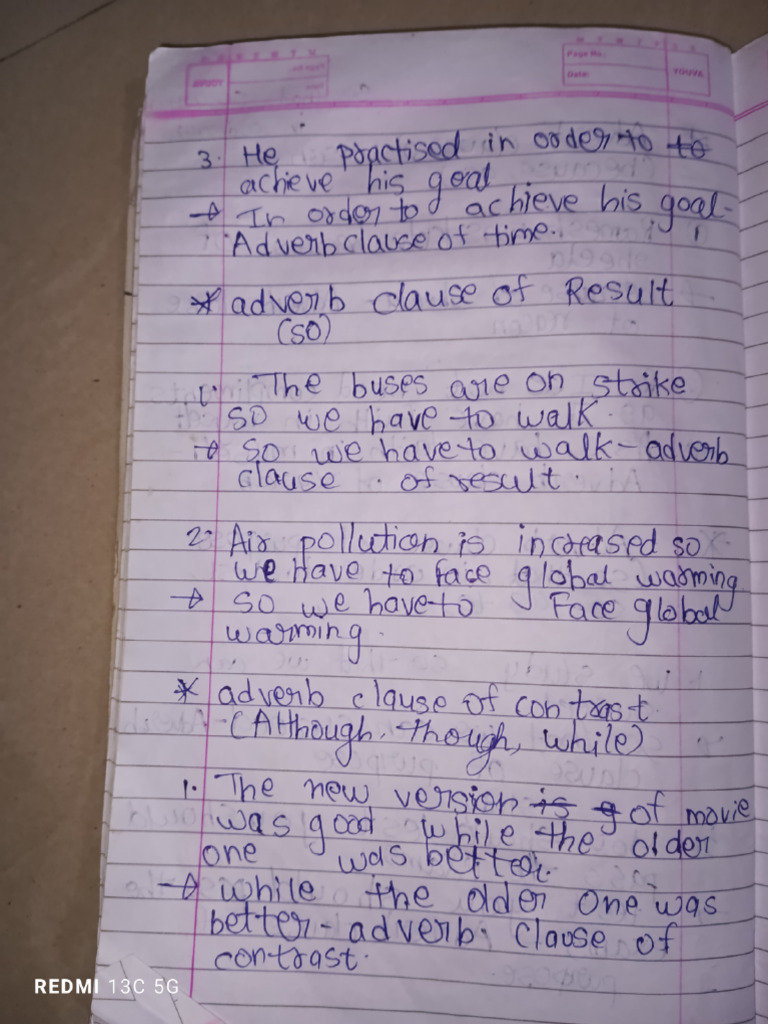 Page No.:
Date:
YOUVA
3. He practised in order to to
achieve his goal
→ In order to achieve his goal-
Adverb clause of time.
* adverb clause of Result
(so)
1. The buses are on strike
so we have to walk.
→ so we have to walk - adverb
clause of result.
2. Air pollution is increased so
we have to face global warming
→ so we have to Face global
warming.
* adverb clause of contrast.
(Although, though, while)
1. The new version is g of movie
was good while the older
one was better.
→ while the older one was
better - adverb clause of
contrast.
REDMI 13C 5G